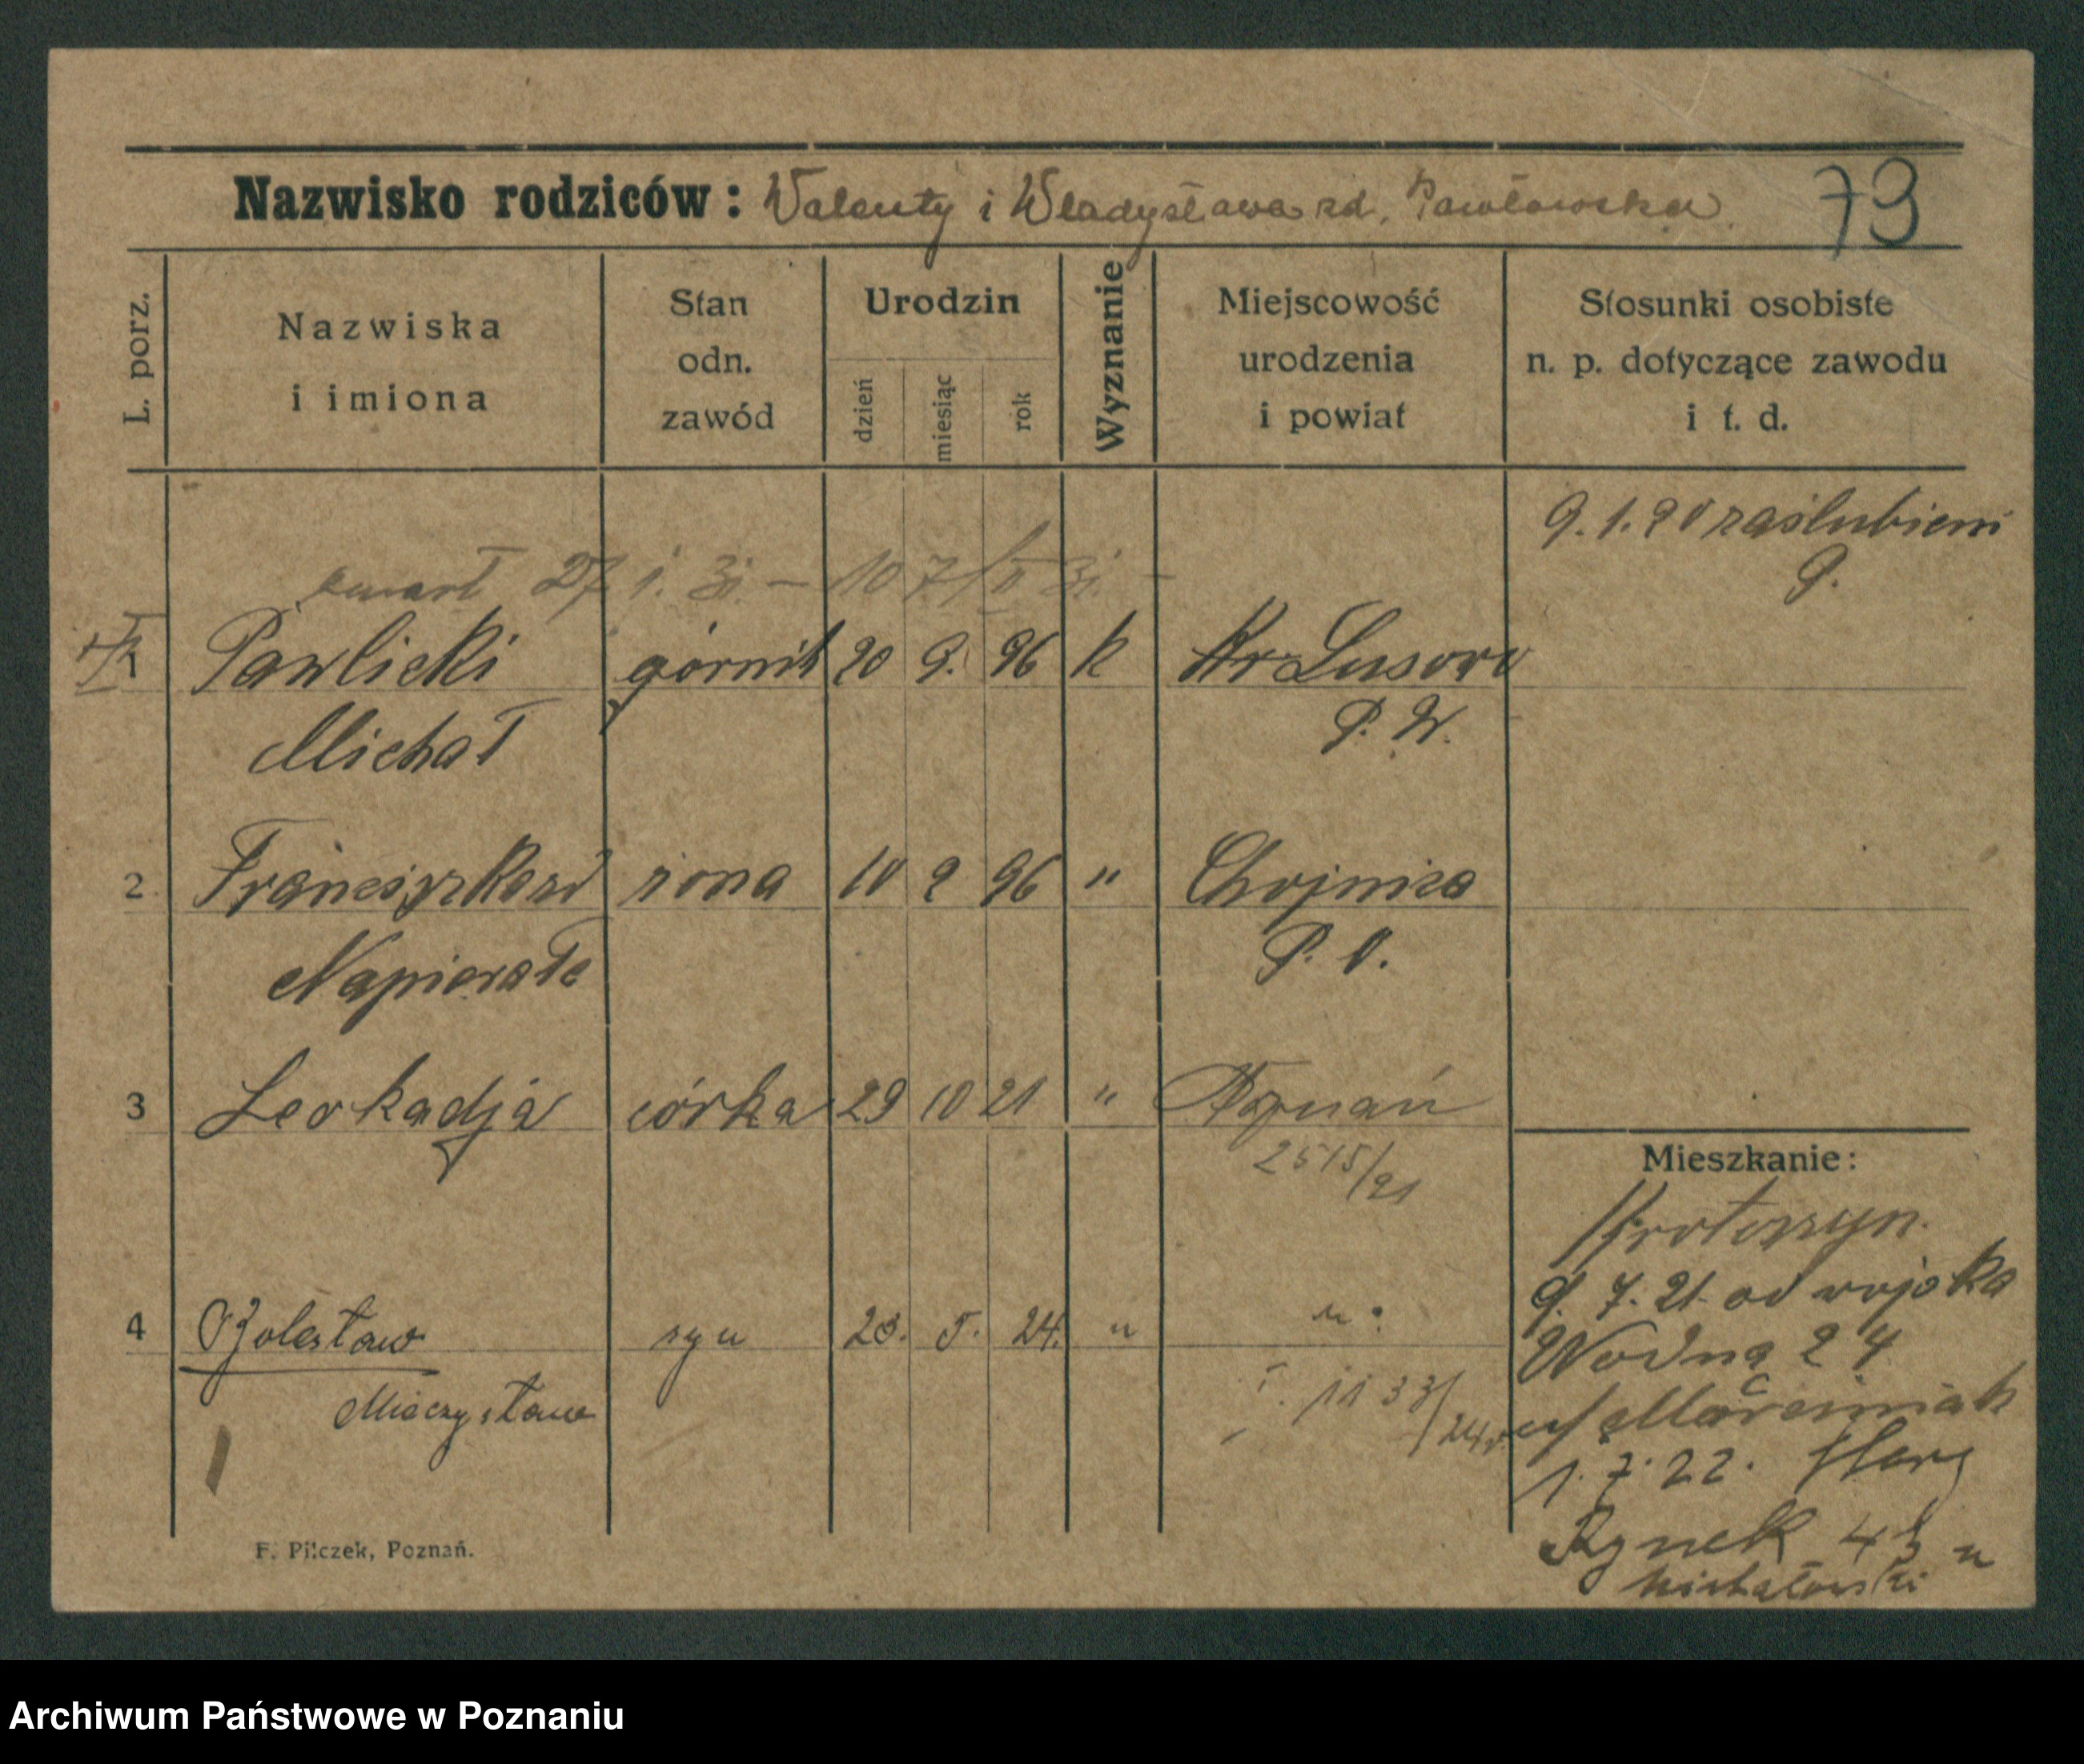 Nazwisko rodziców: Walenty i Władysława zd. Pawłowska 73
L. porz.
Nazwiska
i imiona
Stan
odn.
zawód
Urodzin
dzień
miesiąc
rok
Wyznanie
Miejscowość
urodzenia
i powiat
Stosunki osobiste
n. p. dotyczące zawodu
i t. d.
9. 1. 20 zaślubieni
P.
27 1. 31 – 10 7/II 31. –
1 Pawlicki górnik 20 9. 96 k Kr Lusowo
Michał P. W.
2 Franciszka zd żona 10 2 96 " Chojnica
Napierała P. O.
3 Leokadja córka 29 10 21 " Poznań
2515/21
4 Bolesław syn 23. 5. 24. " "
Mieczysław I. 1133/24r.
Mieszkanie:
Krotoszyn.
9. 7. 21. od wojska
Wodna 24
u/ Marciniak
1. 7. 22. Stary
Rynek 45 u
Michałowski
F. Pilczek, Poznań.
Archiwum Państwowe w Poznaniu